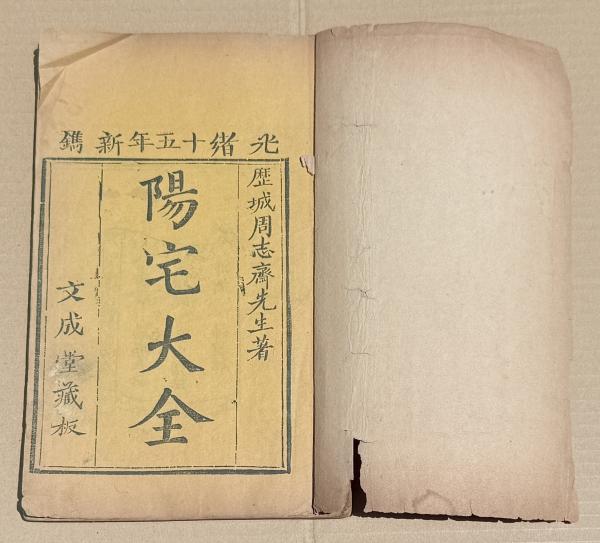 光緒十五年新鐫
歷城周志齋先生著
陽宅大全
文成堂藏板